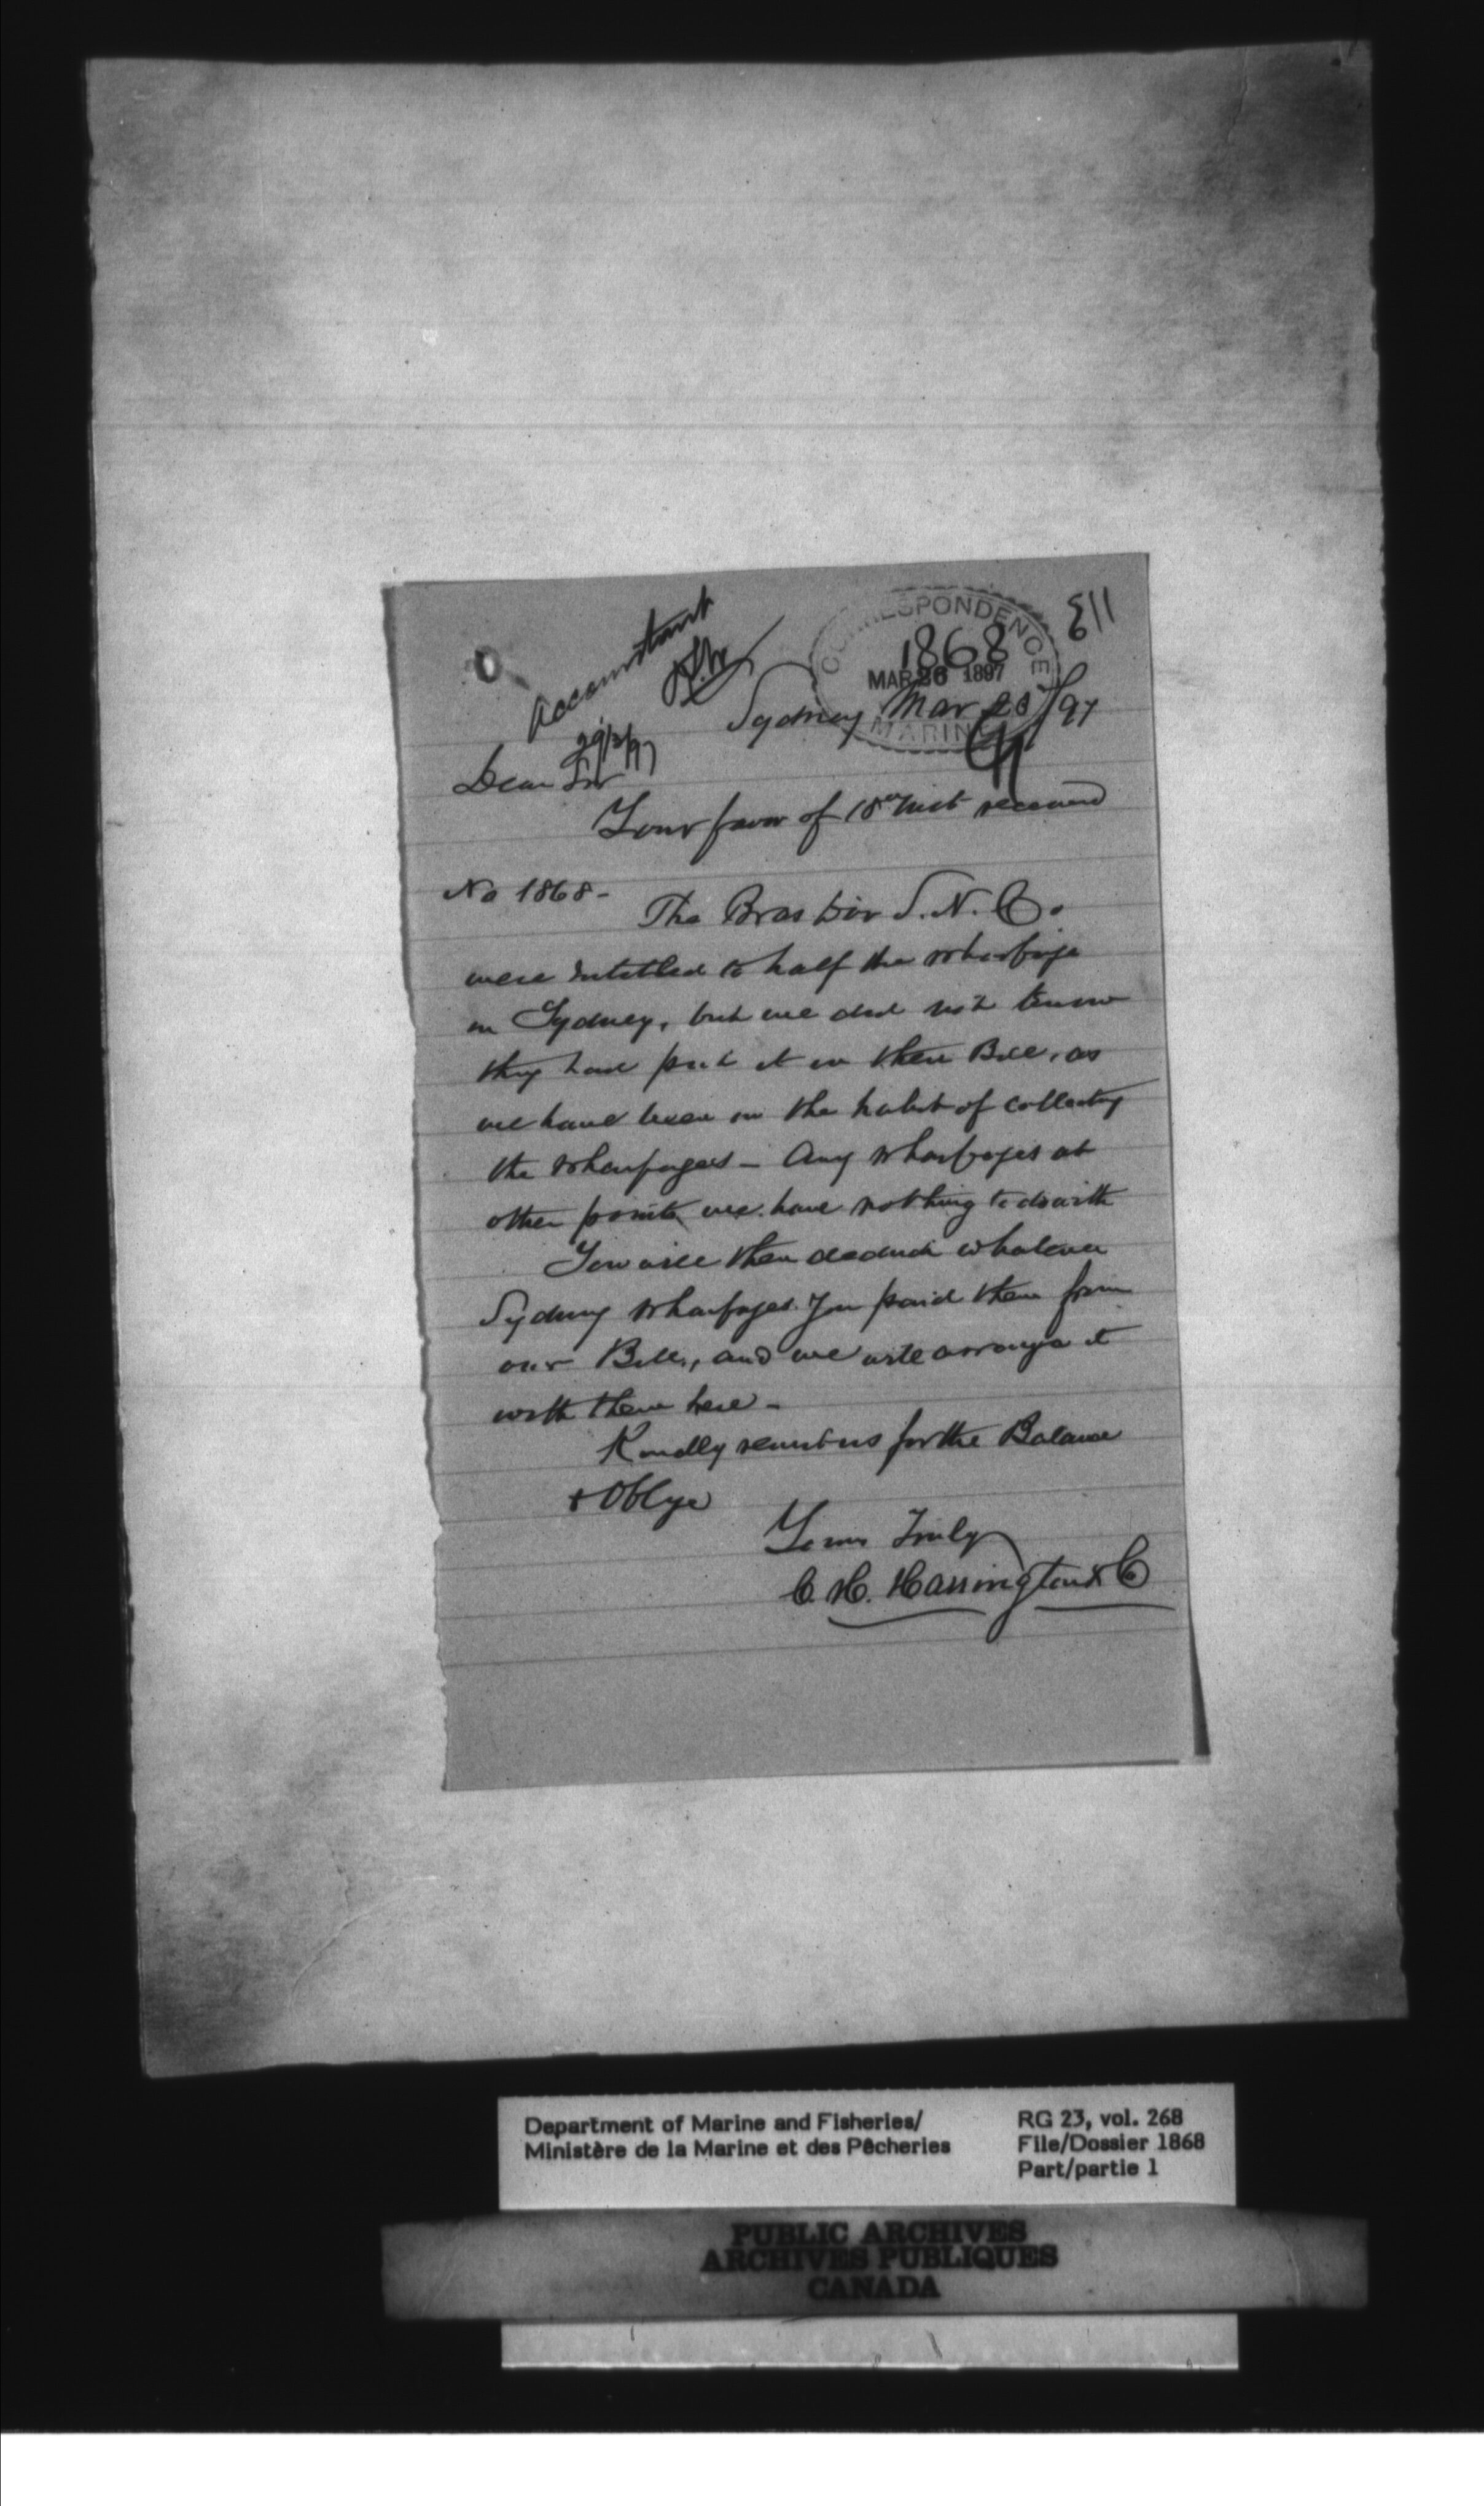 Accountant
29/3/97
CORRESPONDENCE
1868
MAR 26 1897
MARINE
113
Sydney Mar 23/97
Dear Sir
Your favor of 18th inst received
No 1868-
The Bras Dor S. N. Co.
were entitled to half the wharfage
in Sydney, but we did not know
they had put it in their Bill, as
we have been in the habit of collecting
the wharfages - Any wharfages at
other points we have nothing to do with
You will then deduct whatever
Sydney wharfages you paid them from
our Bill, and we will arrange it
with them here -
Kindly remit us for the Balance
& Oblige
Yours Truly
C. H. Harrington & Co
Department of Marine and Fisheries/
Ministère de la Marine et des Pêcheries
RG 23, vol. 268
File/Dossier 1868
Part/partie 1
PUBLIC ARCHIVES
ARCHIVES PUBLIQUES
CANADA